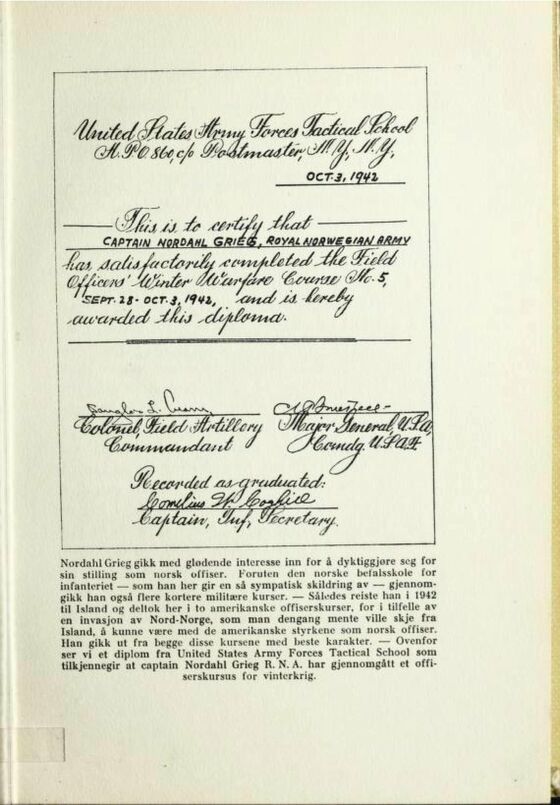 United States Army Forces Tactical School
A.P.O. 860, c/o Postmaster, N.Y., N.Y.,
OCT. 3, 1942
This is to certify that
CAPTAIN NORDAHL GRIEG, ROYAL NORWEGIAN ARMY
has satisfactorily completed the Field
Officers' Winter Warfare Course No. 5,
SEPT. 28 - OCT. 3, 1942, and is hereby
awarded this diploma.
Colonel, Field Artillery
Commandant
Major General, U.S.A.
Comdg. U.S.A.F.
Recorded as graduated:
Cornelius W. Coghill
Captain, Inf., Secretary.
Nordahl Grieg gikk med glødende interesse inn for å dyktiggjøre seg for
sin stilling som norsk offiser. Foruten den norske befalsskole for
infanteriet — som han her gir en så sympatisk skildring av — gjennom-
gikk han også flere kortere militære kurser. — Således reiste han i 1942
til Island og deltok her i to amerikanske offiserskurser, for i tilfelle av
en invasjon av Nord-Norge, som man dengang mente ville skje fra
Island, å kunne være med de amerikanske styrkene som norsk offiser.
Han gikk ut fra begge disse kursene med beste karakter. — Ovenfor
ser vi et diplom fra United States Army Forces Tactical School som
tilkjennegir at captain Nordahl Grieg R. N. A. har gjennomgått et offi-
serskursus for vinterkrig.